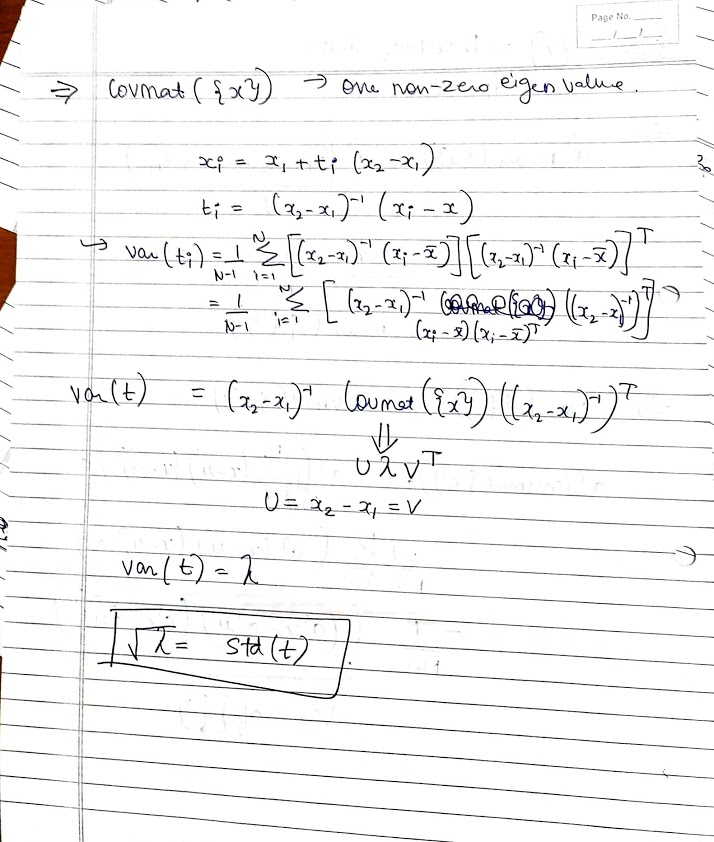 Page No.
/ /
⇒ Covmat ({x}) → One non-zero eigen value.
xᵢ = x₁ + tᵢ (x₂-x₁)
tᵢ = (x₂-x₁)⁻¹ (xᵢ - x)
↪ var(tᵢ) = 1/(N-1) Σᵢ₌₁ᴺ [(x₂-x₁)⁻¹ (xᵢ-x̄)] [(x₂-x₁)⁻¹ (xᵢ-x̄)]ᵀ
= 1/(N-1) Σᵢ₌₁ᴺ [(x₂-x₁)⁻¹ (xᵢ-x̄)(xᵢ-x̄)ᵀ ((x₂-x₁)⁻¹)ᵀ]
var(t) = (x₂-x₁)⁻¹ Covmat({x}) ((x₂-x₁)⁻¹)ᵀ
⇓
U λ Vᵀ
U = x₂ - x₁ = V
var(t) = λ
√λ = std(t)